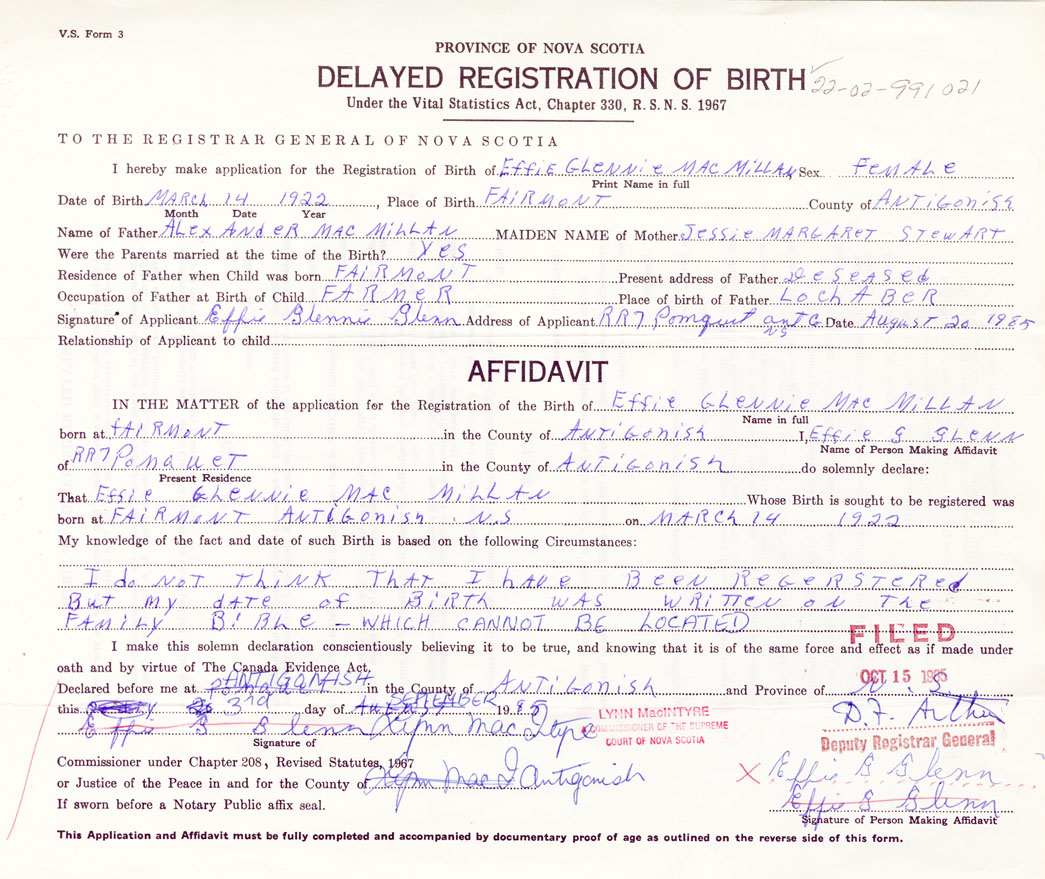 V.S. Form 3
PROVINCE OF NOVA SCOTIA
DELAYED REGISTRATION OF BIRTH 22-02-991021
Under the Vital Statistics Act, Chapter 330, R.S.N.S. 1967
TO THE REGISTRAR GENERAL OF NOVA SCOTIA
I hereby make application for the Registration of Birth of EffiE GLENNiE MAC MiLLAN Sex FEMALE
Print Name in full
Date of Birth MARCH 14 1922, Place of Birth FAiRMONT County of ANTiGONiSH
Month Date Year
Name of Father ALEXANdER MAC MiLLAN MAIDEN NAME of Mother JESSiE MARGARET STEWART
Were the Parents married at the time of the Birth? YES
Residence of Father when Child was born FAiRMONT Present address of Father DeSeASed
Occupation of Father at Birth of Child FARMER Place of birth of Father LOCHABER
Signature of Applicant Effie Glennie Glenn Address of Applicant RR7 Pomquet antG NS Date August 20 1985
Relationship of Applicant to child
AFFIDAVIT
IN THE MATTER of the application for the Registration of the Birth of EffiE GLENNiE MAC MiLLAN
Name in full
born at fAiRMONT in the County of ANTiGONiSH I, EffiE G GLENN
Name of Person Making Affidavit
of RR7 PomqueT in the County of ANTiGONiSH do solemnly declare:
Present Residence
That EffiE GLENNiE MAC MiLLAN Whose Birth is sought to be registered was
born at FAiRMONT ANTiGONiSH N.S on MARCH 14 1922
My knowledge of the fact and date of such Birth is based on the following Circumstances:
I do NoT THiNK THAT I HAVE BEEN REGERSTERED
BuT MY dATE of BiRTH WAS WRiTTEN ON THE
FAMiLY BiBLE – WHICH CANNOT BE LOCATED
FILED
I make this solemn declaration conscientiously believing it to be true, and knowing that it is of the same force and effect as if made under
oath and by virtue of The Canada Evidence Act.
OCT 15 1985
Declared before me at ANTIGONISH in the County of ANTiGONiSH and Province of N.S
this 3rd day of SEPTEMBER 1985
D.F. Arthur
Effie G Glenn
LYNN MacINTYRE
COMMISSIONER OF THE SUPREME
COURT OF NOVA SCOTIA
Deputy Registrar General
Signature of
Commissioner under Chapter 208, Revised Statutes, 1967
or Justice of the Peace in and for the County of Antigonish
X Effie G Glenn
Effie G Glenn
If sworn before a Notary Public affix seal.
Signature of Person Making Affidavit
This Application and Affidavit must be fully completed and accompanied by documentary proof of age as outlined on the reverse side of this form.